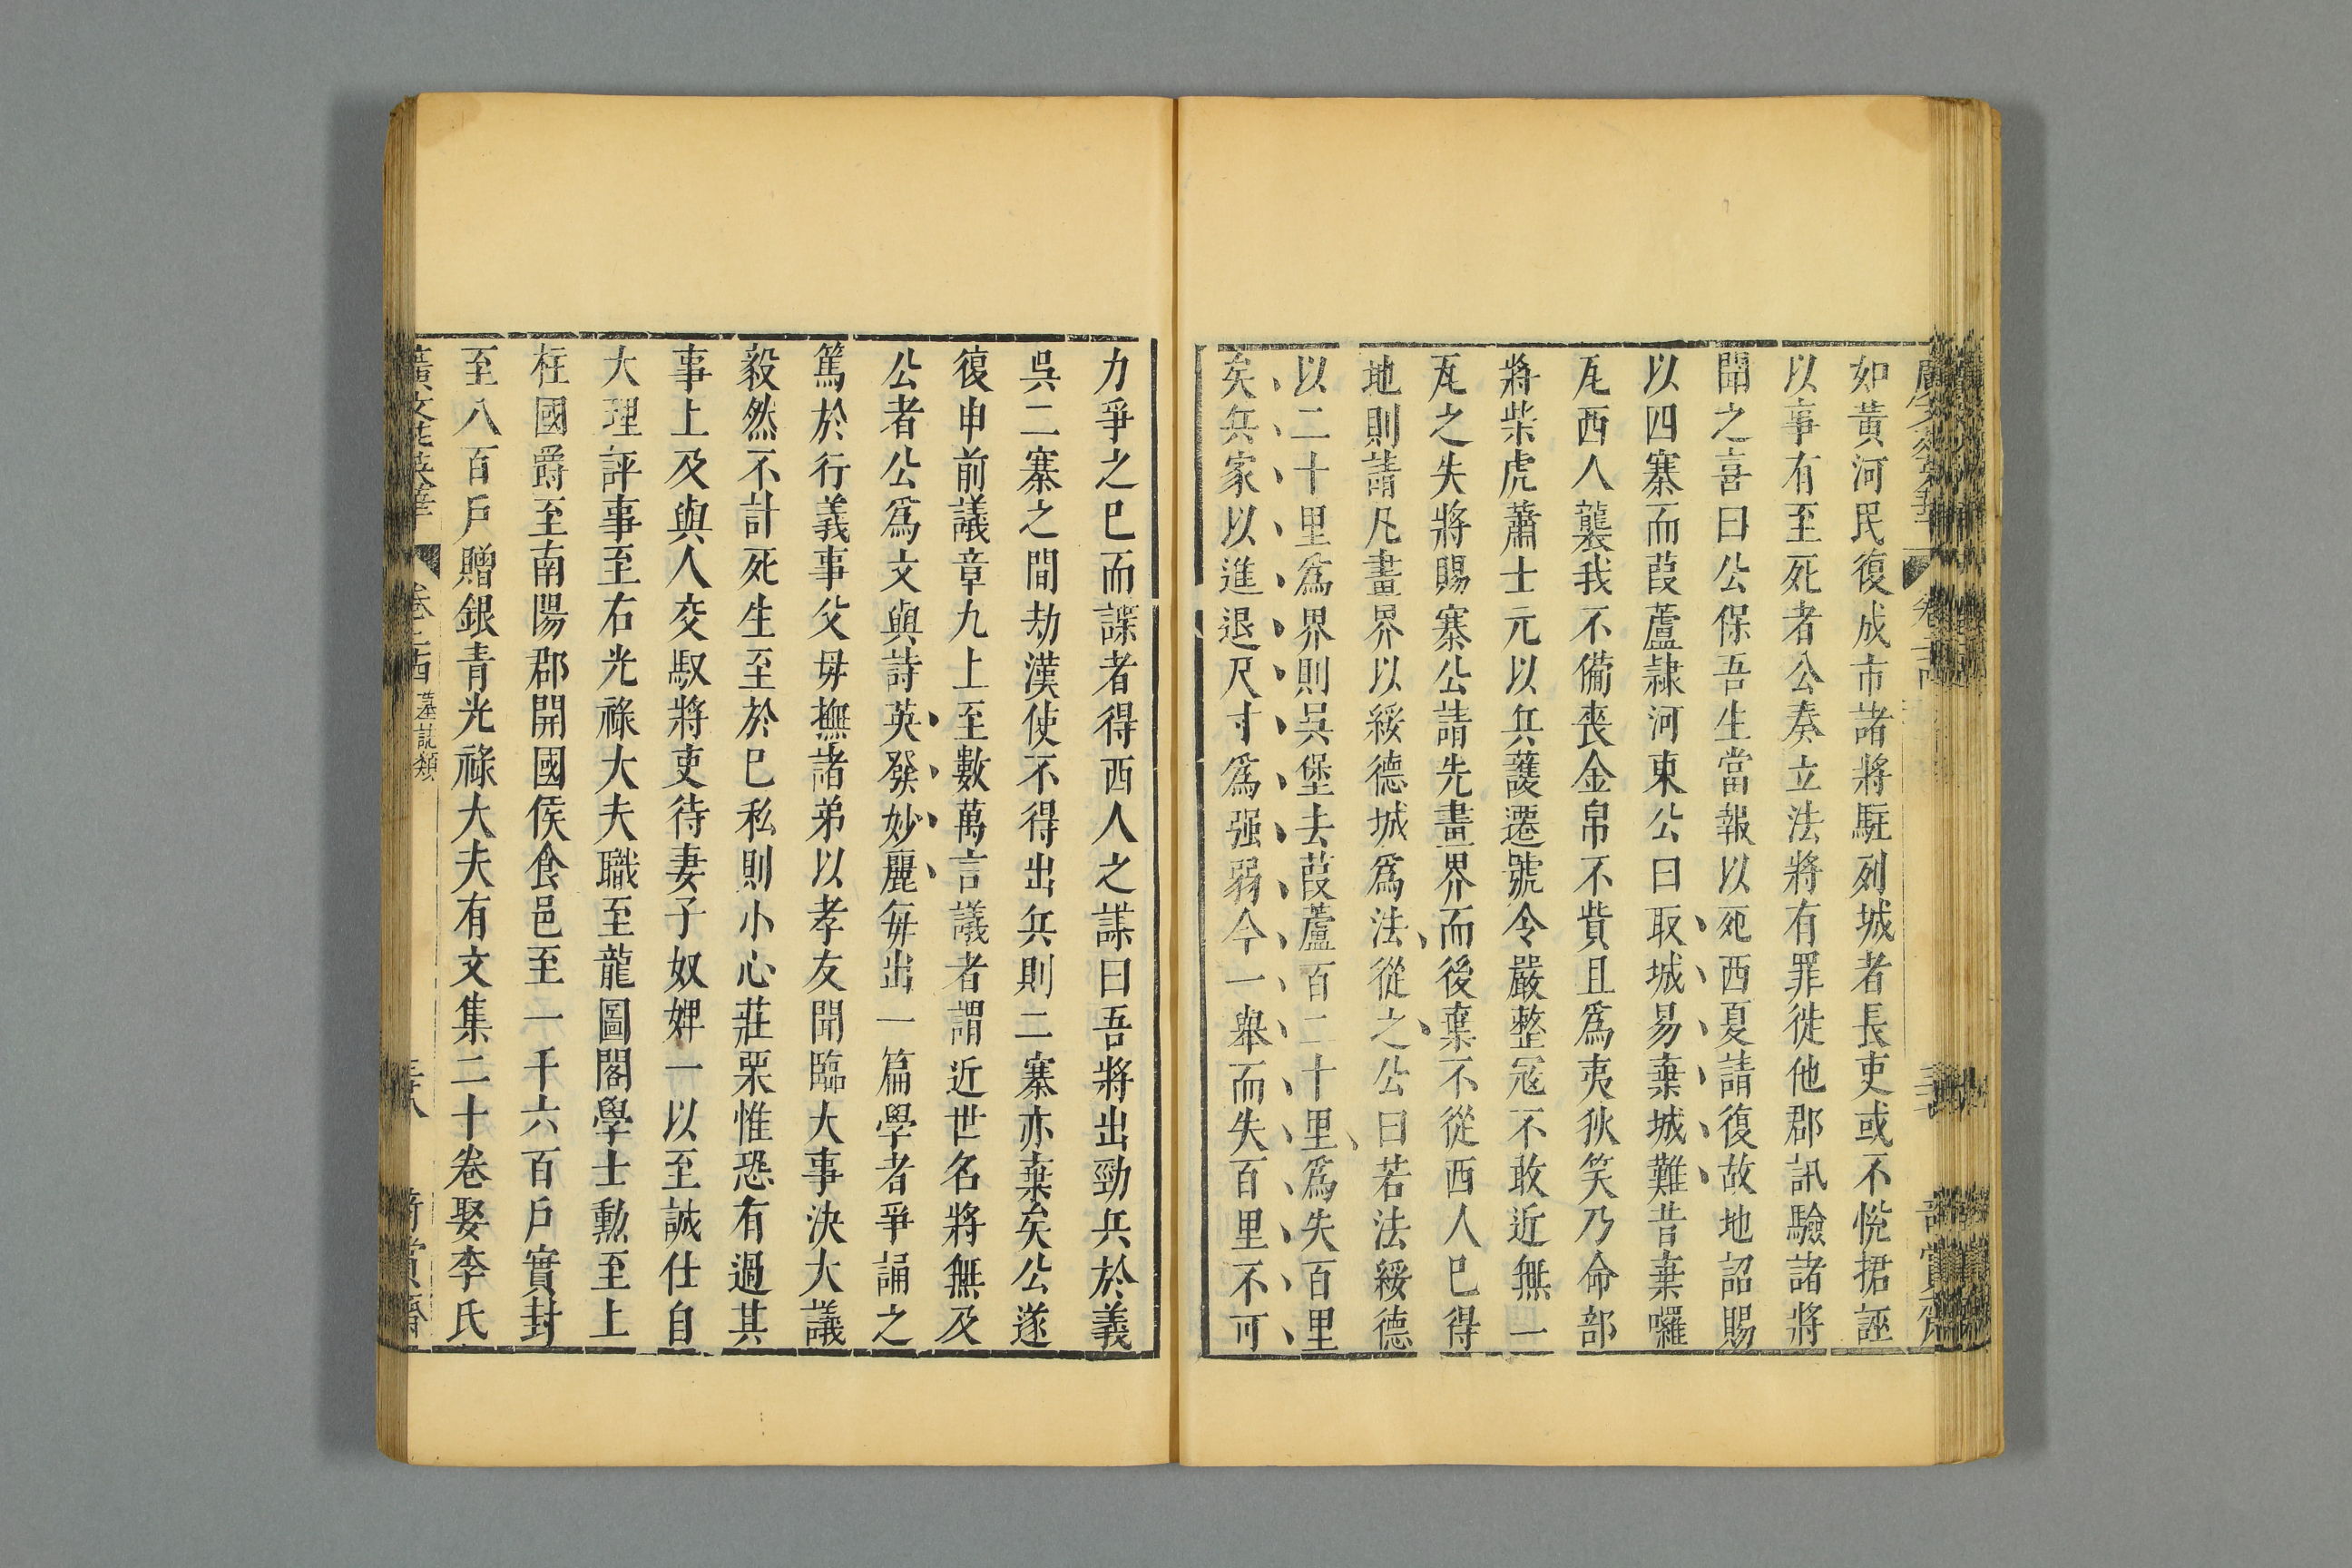 如黃河民復成市諸將駐列城者長吏或不悅捃誣
以事有至死者公奏立法將有罪徙他郡訊驗諸將
聞之喜曰公保吾生當報以死西夏請復故地詔賜
以四寨而葭蘆隷河東公曰取城易棄城難昔棄囉
瓦西人襲我不備喪金帛不貲且爲夷狄笑乃命部
將柴虎蕭士元以兵護遷號令嚴整冦不敢近無一
瓦之失將賜寨公請先畫界而後棄不從西人巳得
地則請凡畫界以綏德城爲法從之公曰若法綏德
以二十里爲界則吳堡去葭蘆百二十里爲失百里
矣兵家以進退尺寸爲强弱今一舉而失百里不可
力爭之巳而諜者得西人之謀曰吾將出勁兵於義
吳二寨之間劫漢使不得出兵則二寨亦棄矣公遂
復申前議章九上至數萬言議者謂近世名將無及
公者公爲文與詩英發妙麗每出一篇學者爭誦之
篤於行義事父毋撫諸弟以孝友聞臨大事決大議
毅然不計死生至於巳私則小心莊栗惟恐有過其
事上及與人交馭將吏待妻子奴婢一以至誠仕自
大理評事至右光祿大夫職至龍圖閣學士勲至上
柱國爵至南陽郡開國侯食邑至一千六百戶實封
至八百戶贈銀青光祿大夫有文集二十卷娶李氏